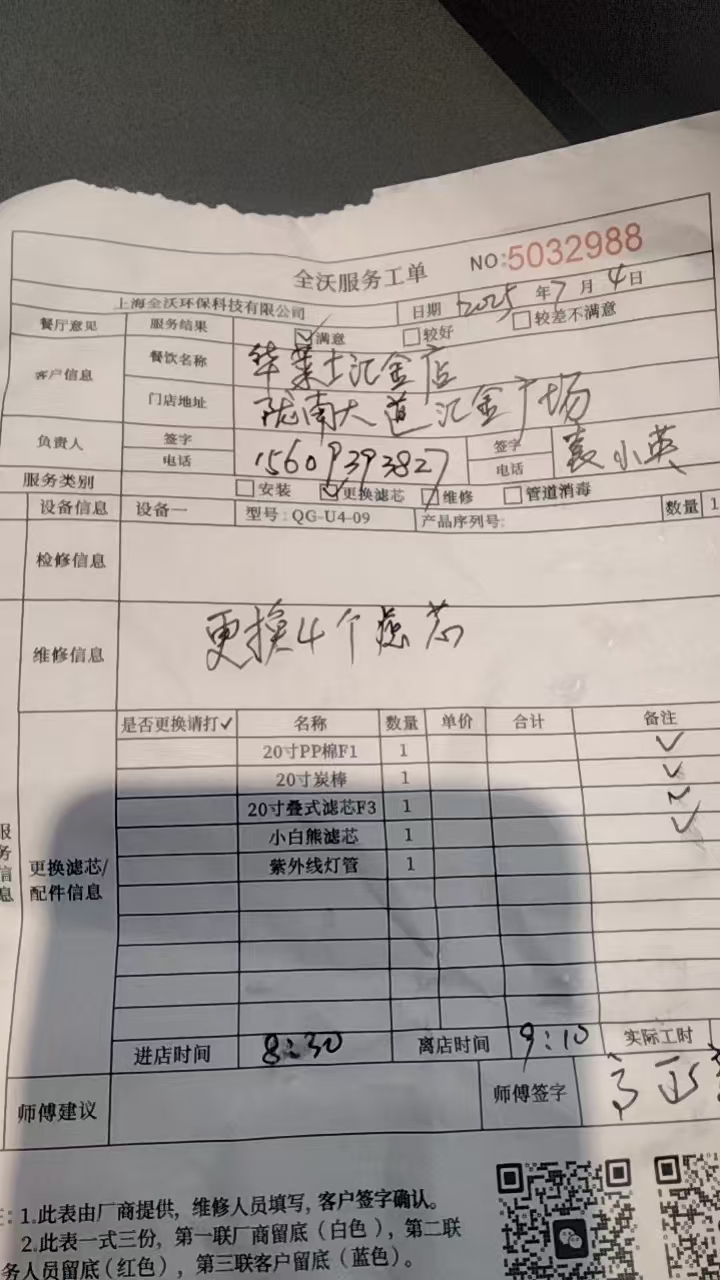 全沃服务工单 NO:5032988
上海全沃环保科技有限公司 日期 2025年7月4日
餐厅意见 服务结果 ☑满意 □较好 □较差不满意
客户信息 餐饮名称 华莱士汇金店
门店地址 陇南大道汇金广场
负责人 签字 电话 15609393827 签字 电话 袁小英
服务类别 □安装 ☑更换滤芯 □维修 □管道消毒
设备信息 设备一 型号: QG-U4-09 产品序列号: 数量 1
检修信息
维修信息 更换4个滤芯
是否更换请打✓ 名称 数量 单价 合计 备注
20寸PP棉F1 1 ✓
20寸炭棒 1 ✓
20寸叠式滤芯F3 1 ✓
小白熊滤芯 1 ✓
紫外线灯管 1
服务信息
更换滤芯/
配件信息
进店时间 8:30 离店时间 9:10 实际工时
师傅建议 师傅签字
1.此表由厂商提供, 维修人员填写, 客户签字确认。
2.此表一式三份, 第一联厂商留底(白色), 第二联
务人员留底(红色), 第三联客户留底(蓝色)。